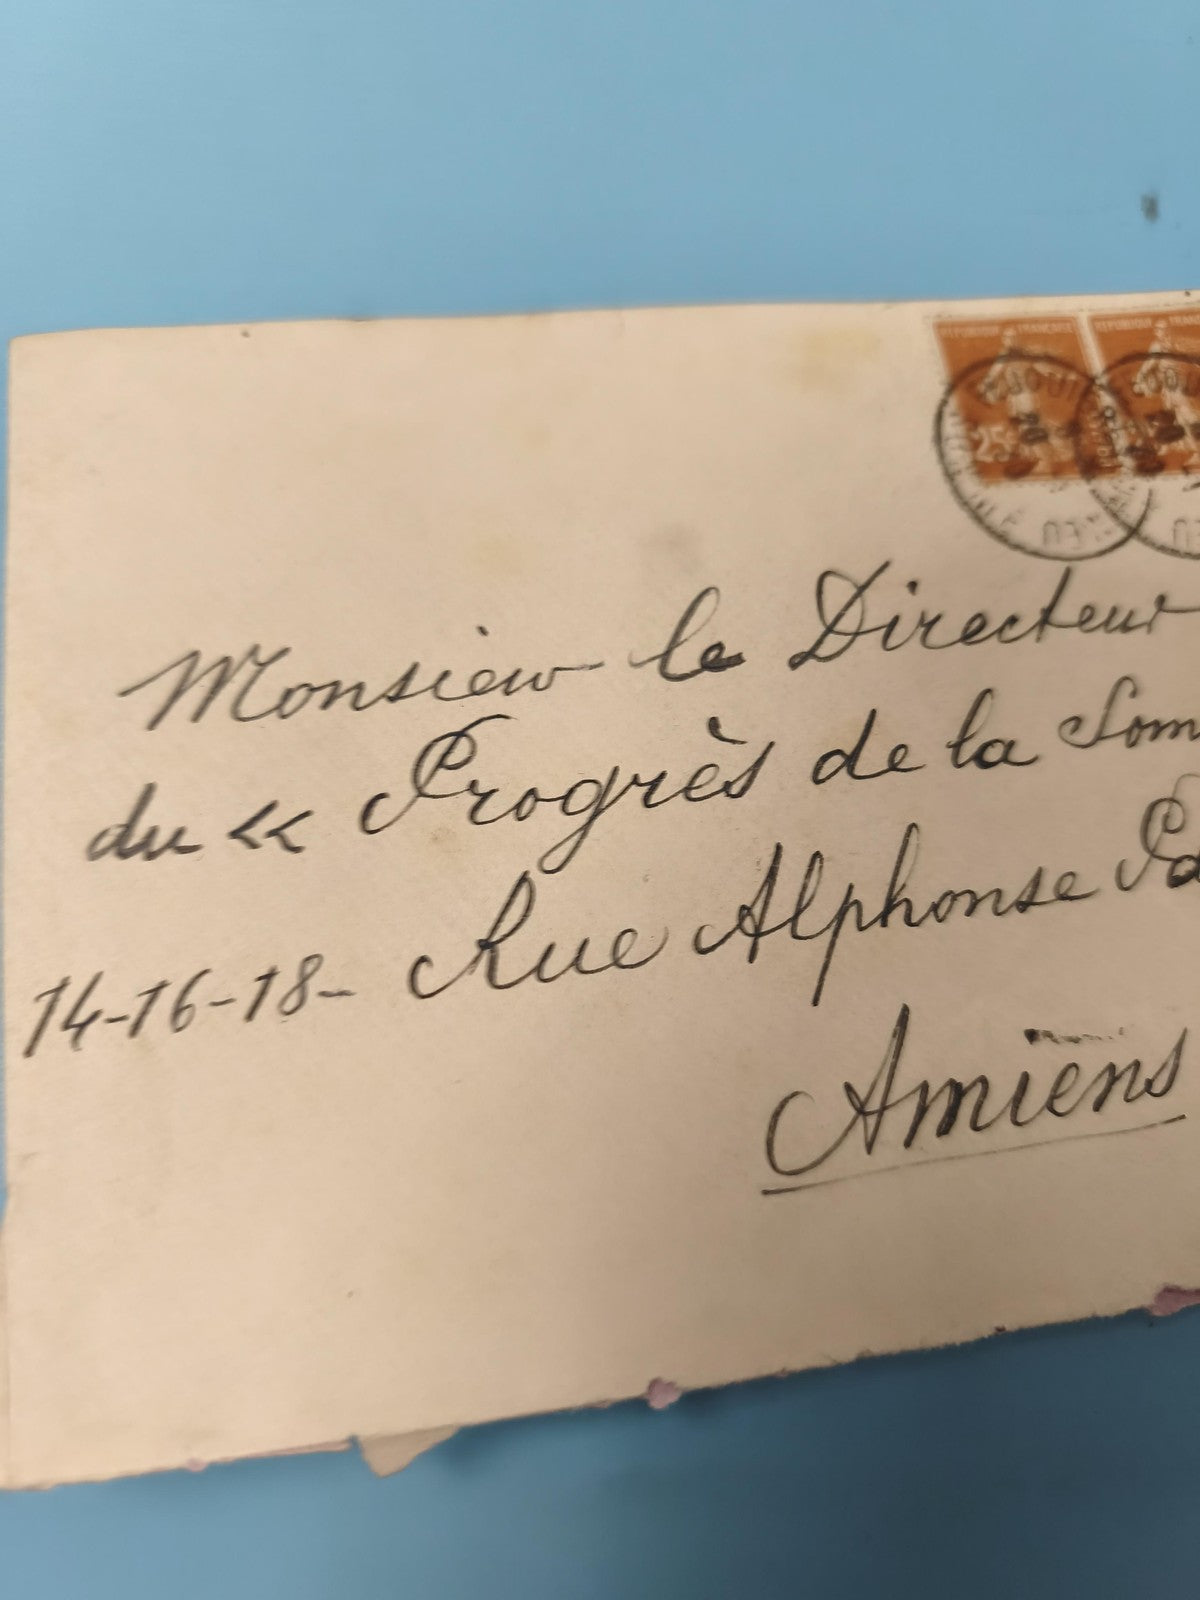 REPUBLIQUE FRANÇAISE REPUBLIQUE
25
20 20
Monsieur le Directeur
du « Progrès de la Som
14-16-18- Rue Alphonse Pa
Amiens